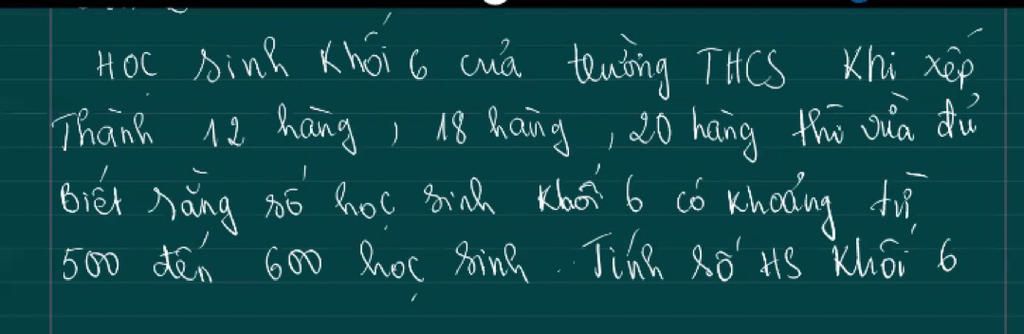 Học sinh Khối 6 của trường THCS Khi xếp
Thành 12 hàng, 18 hàng, 20 hàng thì vừa đủ
Biết rằng số học sinh Khối 6 có khoảng từ
500 đến 600 học sinh. Tính số HS Khối 6